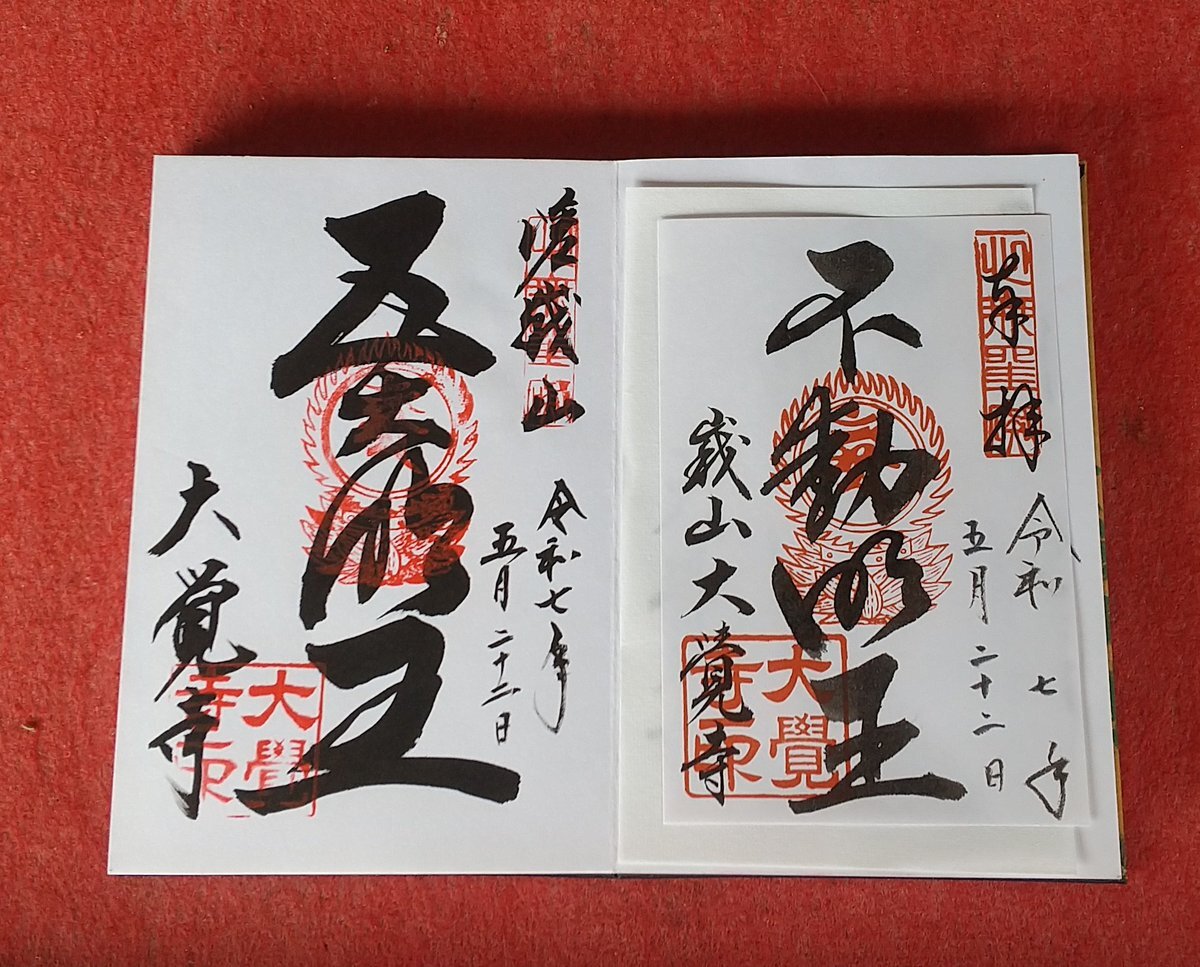 奉拝
令和七年
五月二十二日
不動明王
峩山大覺寺
大覺
寺印
嵯峨山
令和七年
五月二十二日
五大明王
大覚寺
大覺
寺印